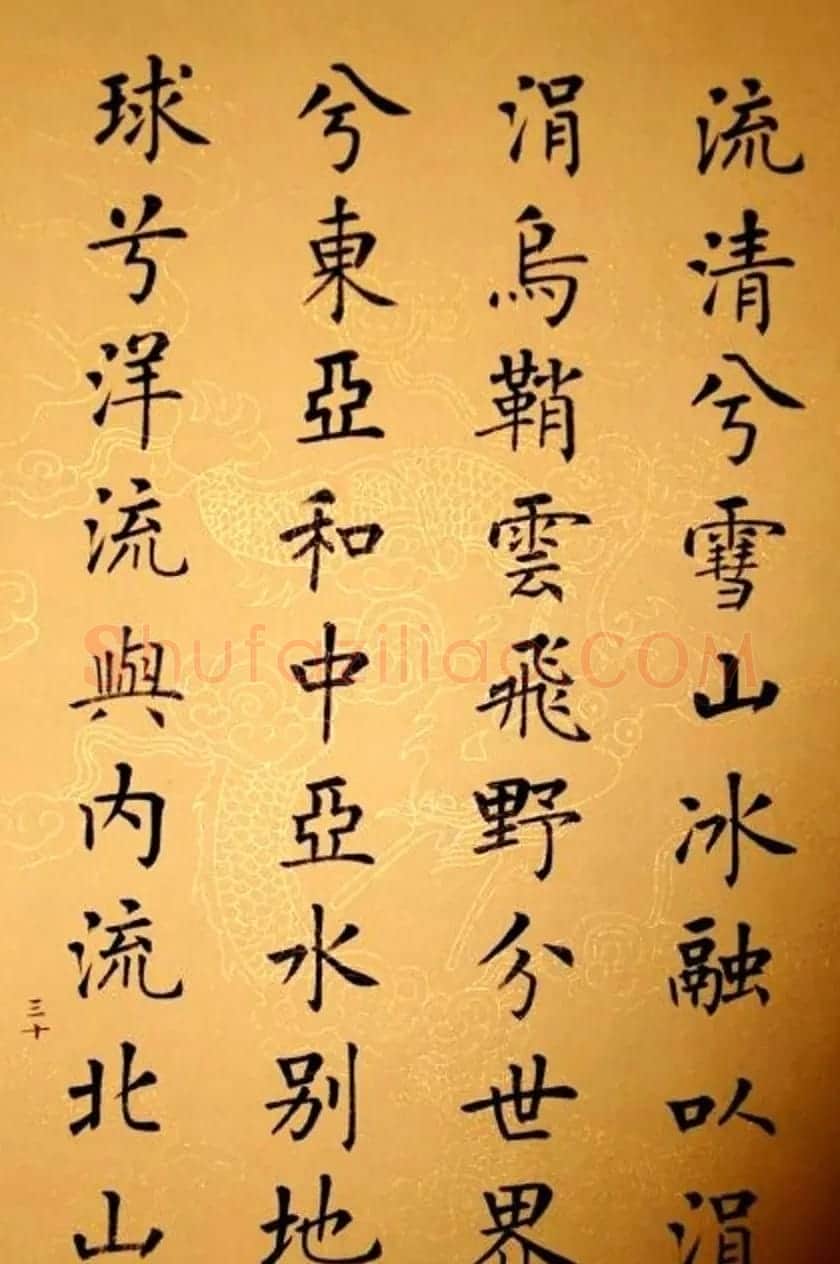 流清兮雪山冰融以涓
涓烏鞘雲飛野分世界
兮東亞和中亞水別地
球兮洋流與内流北山
三十
Shufaziliao.COM